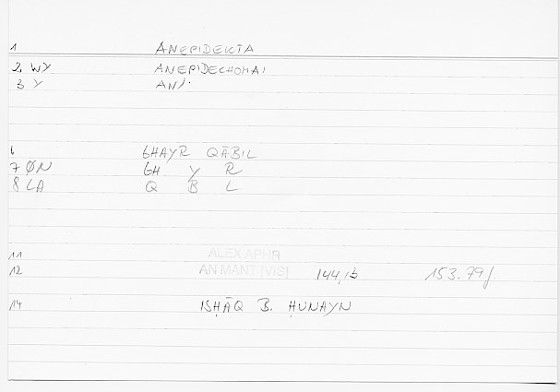 1 ANEPIDEKTA
2 WY ANEPIDECHOMAI
3 Y AN/.
6 GHAYR QĀBIL
7 ØN GH Y R
8 LA Q B L
11 ALEX APHR
12 AN MANT [VIS] 144,16 153.79/
14 ISḤĀQ B. ḤUNAYN